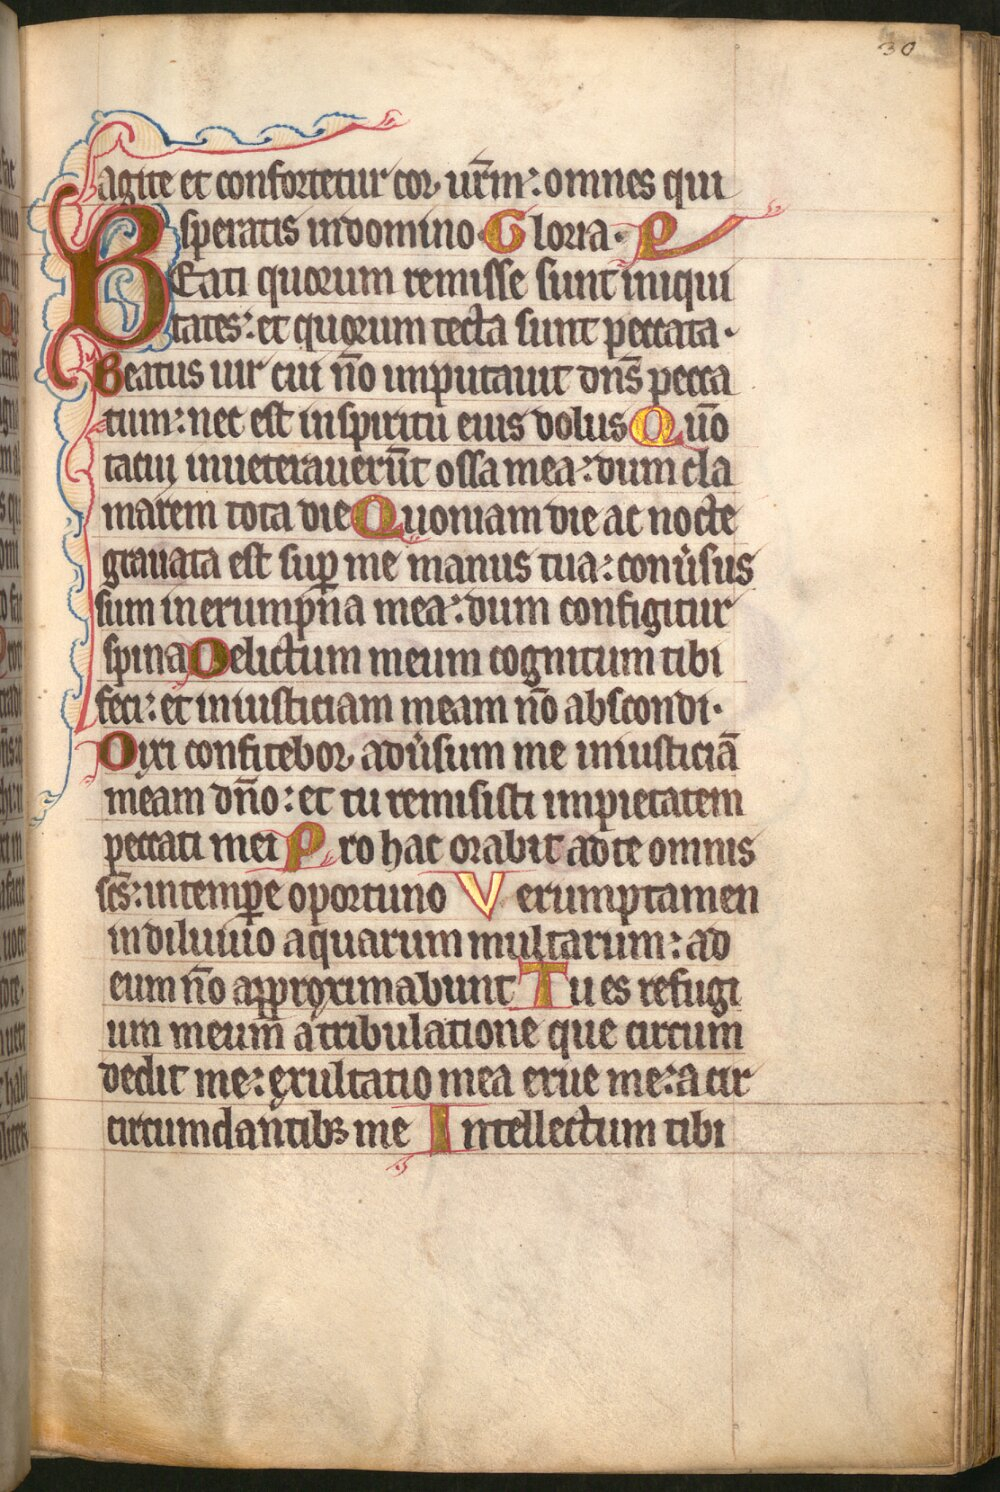 30
agite et confortetur cor ur̄m: omnes qui
speratis in domino Gloria. P
BEati quorum remisse sunt iniqui
tates: et quorum tecta sunt peccata.
Beatus uir cui nō imputauit dn̄s pecca
tum: nec est in spiritu eius dolus Qūo
tacui inueterauerūt ossa mea: dum cla
marem tota die Quoniam die ac nocte
grauata est sup̱ me manus tua: conūsus
sum in erumpn̄a mea: dum configitur
spina Delictum meum cognitum tibi
feci: et iniusticiam meam nō abscondi.
Dixi confitebor adūsum me iniusticiā
meam dn̄o: et tu remisisti impietatem
peccati mei Pro hac orabit ad te omnis
sc̄s: in temp̱e oportuno Verumptamen
in diluuio aquarum multarum: ad
eum nō approximabunt Tu es refugi
um meum̄ a tribulatione que circum
dedit me: exultatio mea erue me: a cir
circumdantibꝫ me Intellectum tibi